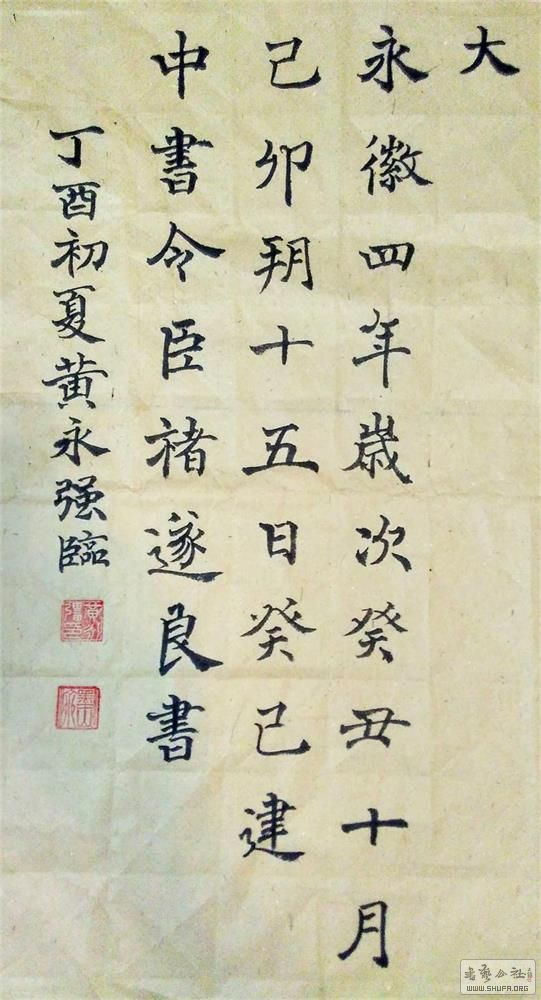 大
永徽四年歳次癸丑十月
己卯朔十五日癸巳建
中書令臣褚遂良書
丁酉初夏黄永强臨
WWW.SHUFA.ORG